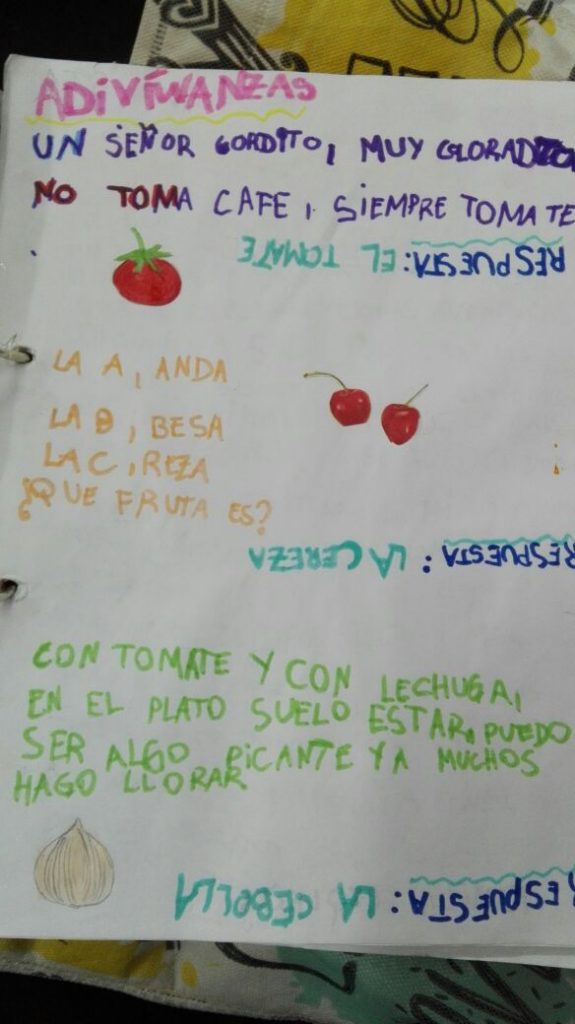 ADIVINANZAS
UN SEÑOR GORDITO, MUY COLORADITO
NO TOMA CAFE, SIEMPRE TOMATE
.
RESPUESTA: EL TOMATE
LA A, ANDA
LA B, BESA
LA C, REZA
¿QUE FRUTA ES?
RESPUESTA: LA CEREZA
CON TOMATE Y CON LECHUGA,
EN EL PLATO SUELO ESTAR, PUEDO
SER ALGO PICANTE Y A MUCHOS
HAGO LLORAR
RESPUESTA: LA CEBOLLA